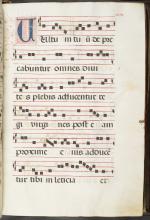 Vultum tuū de pre
cabuntur omnes divi
tes plebis adducentur re
gi virgines post eam
proxime eius adducē
tur tibi in leticia et